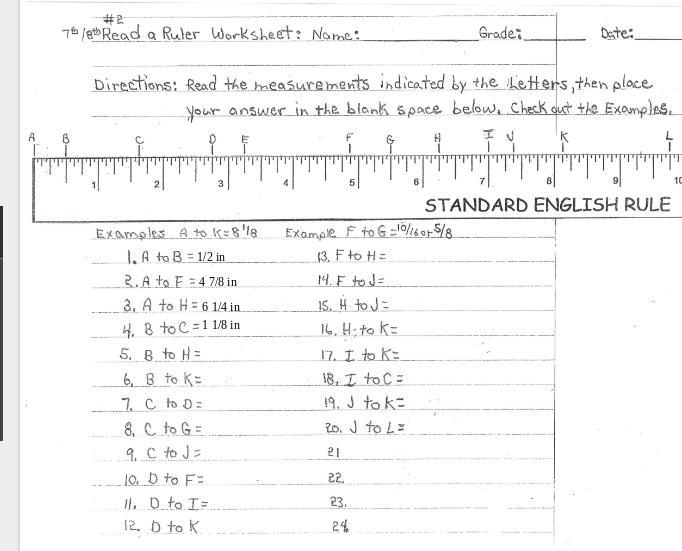 #2
7th/8th Read a Ruler Worksheet: Name: Grade: Date:
Directions: Read the measurements indicated by the Letters, then place
your answer in the blank space below. Check out the Examples.
A B C D E F G H I J K L
1 2 3 4 5 6 7 8 9 10
STANDARD ENGLISH RULE
Examples A to K=8 1/8 Example F to G=10/16 or 5/8
1. A to B = 1/2 in 13. F to H=
2. A to F = 4 7/8 in 14. F to J=
3. A to H= 6 1/4 in 15. H to J=
4. B to C =1 1/8 in 16. H to K=
5. B to H= 17. I to K=
6. B to K= 18. I to C=
7. C to D= 19. J to K=
8. C to G= 20. J to L=
9. C to J= 21
10. D to F= 22.
11. D to I= 23.
12. D to K 24